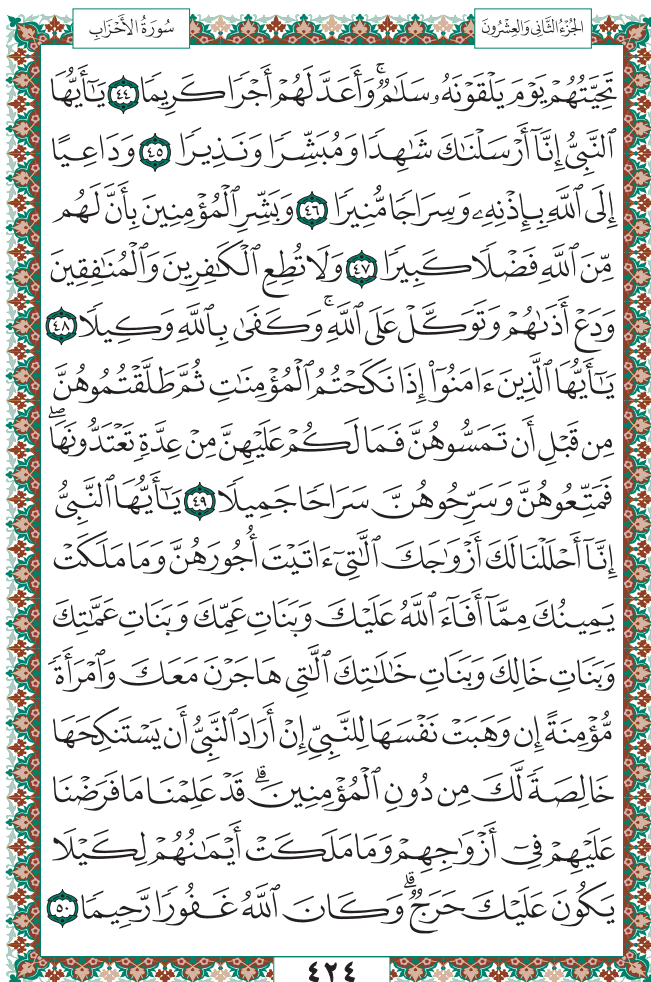 الجُزْءُ الثَّانِي وَالعِشْرُونَ
سُورَةُ الأَحْزَابِ
تَحِيَّتُهُمْ يَوْمَ يَلْقَوْنَهُۥ سَلَٰمٌۚ وَأَعَدَّ لَهُمْ أَجْرًا كَرِيمًا ٤٤ يَٰٓأَيُّهَا
ٱلنَّبِيُّ إِنَّآ أَرْسَلْنَٰكَ شَٰهِدًا وَمُبَشِّرًا وَنَذِيرًا ٤٥ وَدَاعِيًا
إِلَى ٱللَّهِ بِإِذْنِهِۦ وَسِرَاجًا مُّنِيرًا ٤٦ وَبَشِّرِ ٱلْمُؤْمِنِينَ بِأَنَّ لَهُم
مِّنَ ٱللَّهِ فَضْلًا كَبِيرًا ٤٧ وَلَا تُطِعِ ٱلْكَٰفِرِينَ وَٱلْمُنَٰفِقِينَ
وَدَعْ أَذَىٰهُمْ وَتَوَكَّلْ عَلَى ٱللَّهِۚ وَكَفَىٰ بِٱللَّهِ وَكِيلًا ٤٨
يَٰٓأَيُّهَا ٱلَّذِينَ ءَامَنُوٓاْ إِذَا نَكَحْتُمُ ٱلْمُؤْمِنَٰتِ ثُمَّ طَلَّقْتُمُوهُنَّ
مِن قَبْلِ أَن تَمَسُّوهُنَّ فَمَا لَكُمْ عَلَيْهِنَّ مِنْ عِدَّةٍ تَعْتَدُّونَهَاۖ
فَمَتِّعُوهُنَّ وَسَرِّحُوهُنَّ سَرَاحًا جَمِيلًا ٤٩ يَٰٓأَيُّهَا ٱلنَّبِيُّ
إِنَّآ أَحْلَلْنَا لَكَ أَزْوَٰجَكَ ٱلَّٰتِيٓ ءَاتَيْتَ أُجُورَهُنَّ وَمَا مَلَكَتْ
يَمِينُكَ مِمَّآ أَفَآءَ ٱللَّهُ عَلَيْكَ وَبَنَاتِ عَمِّكَ وَبَنَاتِ عَمَّٰتِكَ
وَبَنَاتِ خَالِكَ وَبَنَاتِ خَٰلَٰتِكَ ٱلَّٰتِي هَاجَرْنَ مَعَكَ وَٱمْرَأَةً
مُّؤْمِنَةً إِن وَهَبَتْ نَفْسَهَا لِلنَّبِيِّ إِنْ أَرَادَ ٱلنَّبِيُّ أَن يَسْتَنكِحَهَا
خَالِصَةً لَّكَ مِن دُونِ ٱلْمُؤْمِنِينَۗ قَدْ عَلِمْنَا مَا فَرَضْنَا
عَلَيْهِمْ فِيٓ أَزْوَٰجِهِمْ وَمَا مَلَكَتْ أَيْمَٰنُهُمْ لِكَيْلَا
يَكُونَ عَلَيْكَ حَرَجٌۗ وَكَانَ ٱللَّهُ غَفُورًا رَّحِيمًا ٥٠
٤٢٤